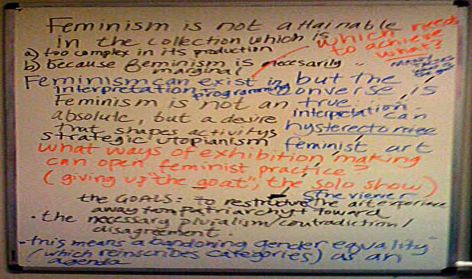 Feminism is not attainable
in the collection which is
a) too complex in its production
b) because feminism is necessarily
marginal
which needs
to achieve
what?
Feminism can exist in
interpretation programming
but the
converse is
true
Feminism is not an
absolute, but a desire
that shapes activitys
strategic utopianism
interpretation can
hystericise
feminist art
what ways of exhibition making
can open feminist practice?
(giving up "the goat", the solo show)
the viewer
the GOALS: to restructure the art experience
away from patriarchy toward
• the necessary pluralism/contradiction/
disagreement.
- this means abandoning gender equality
(which reinscribes categories) as an
agenda